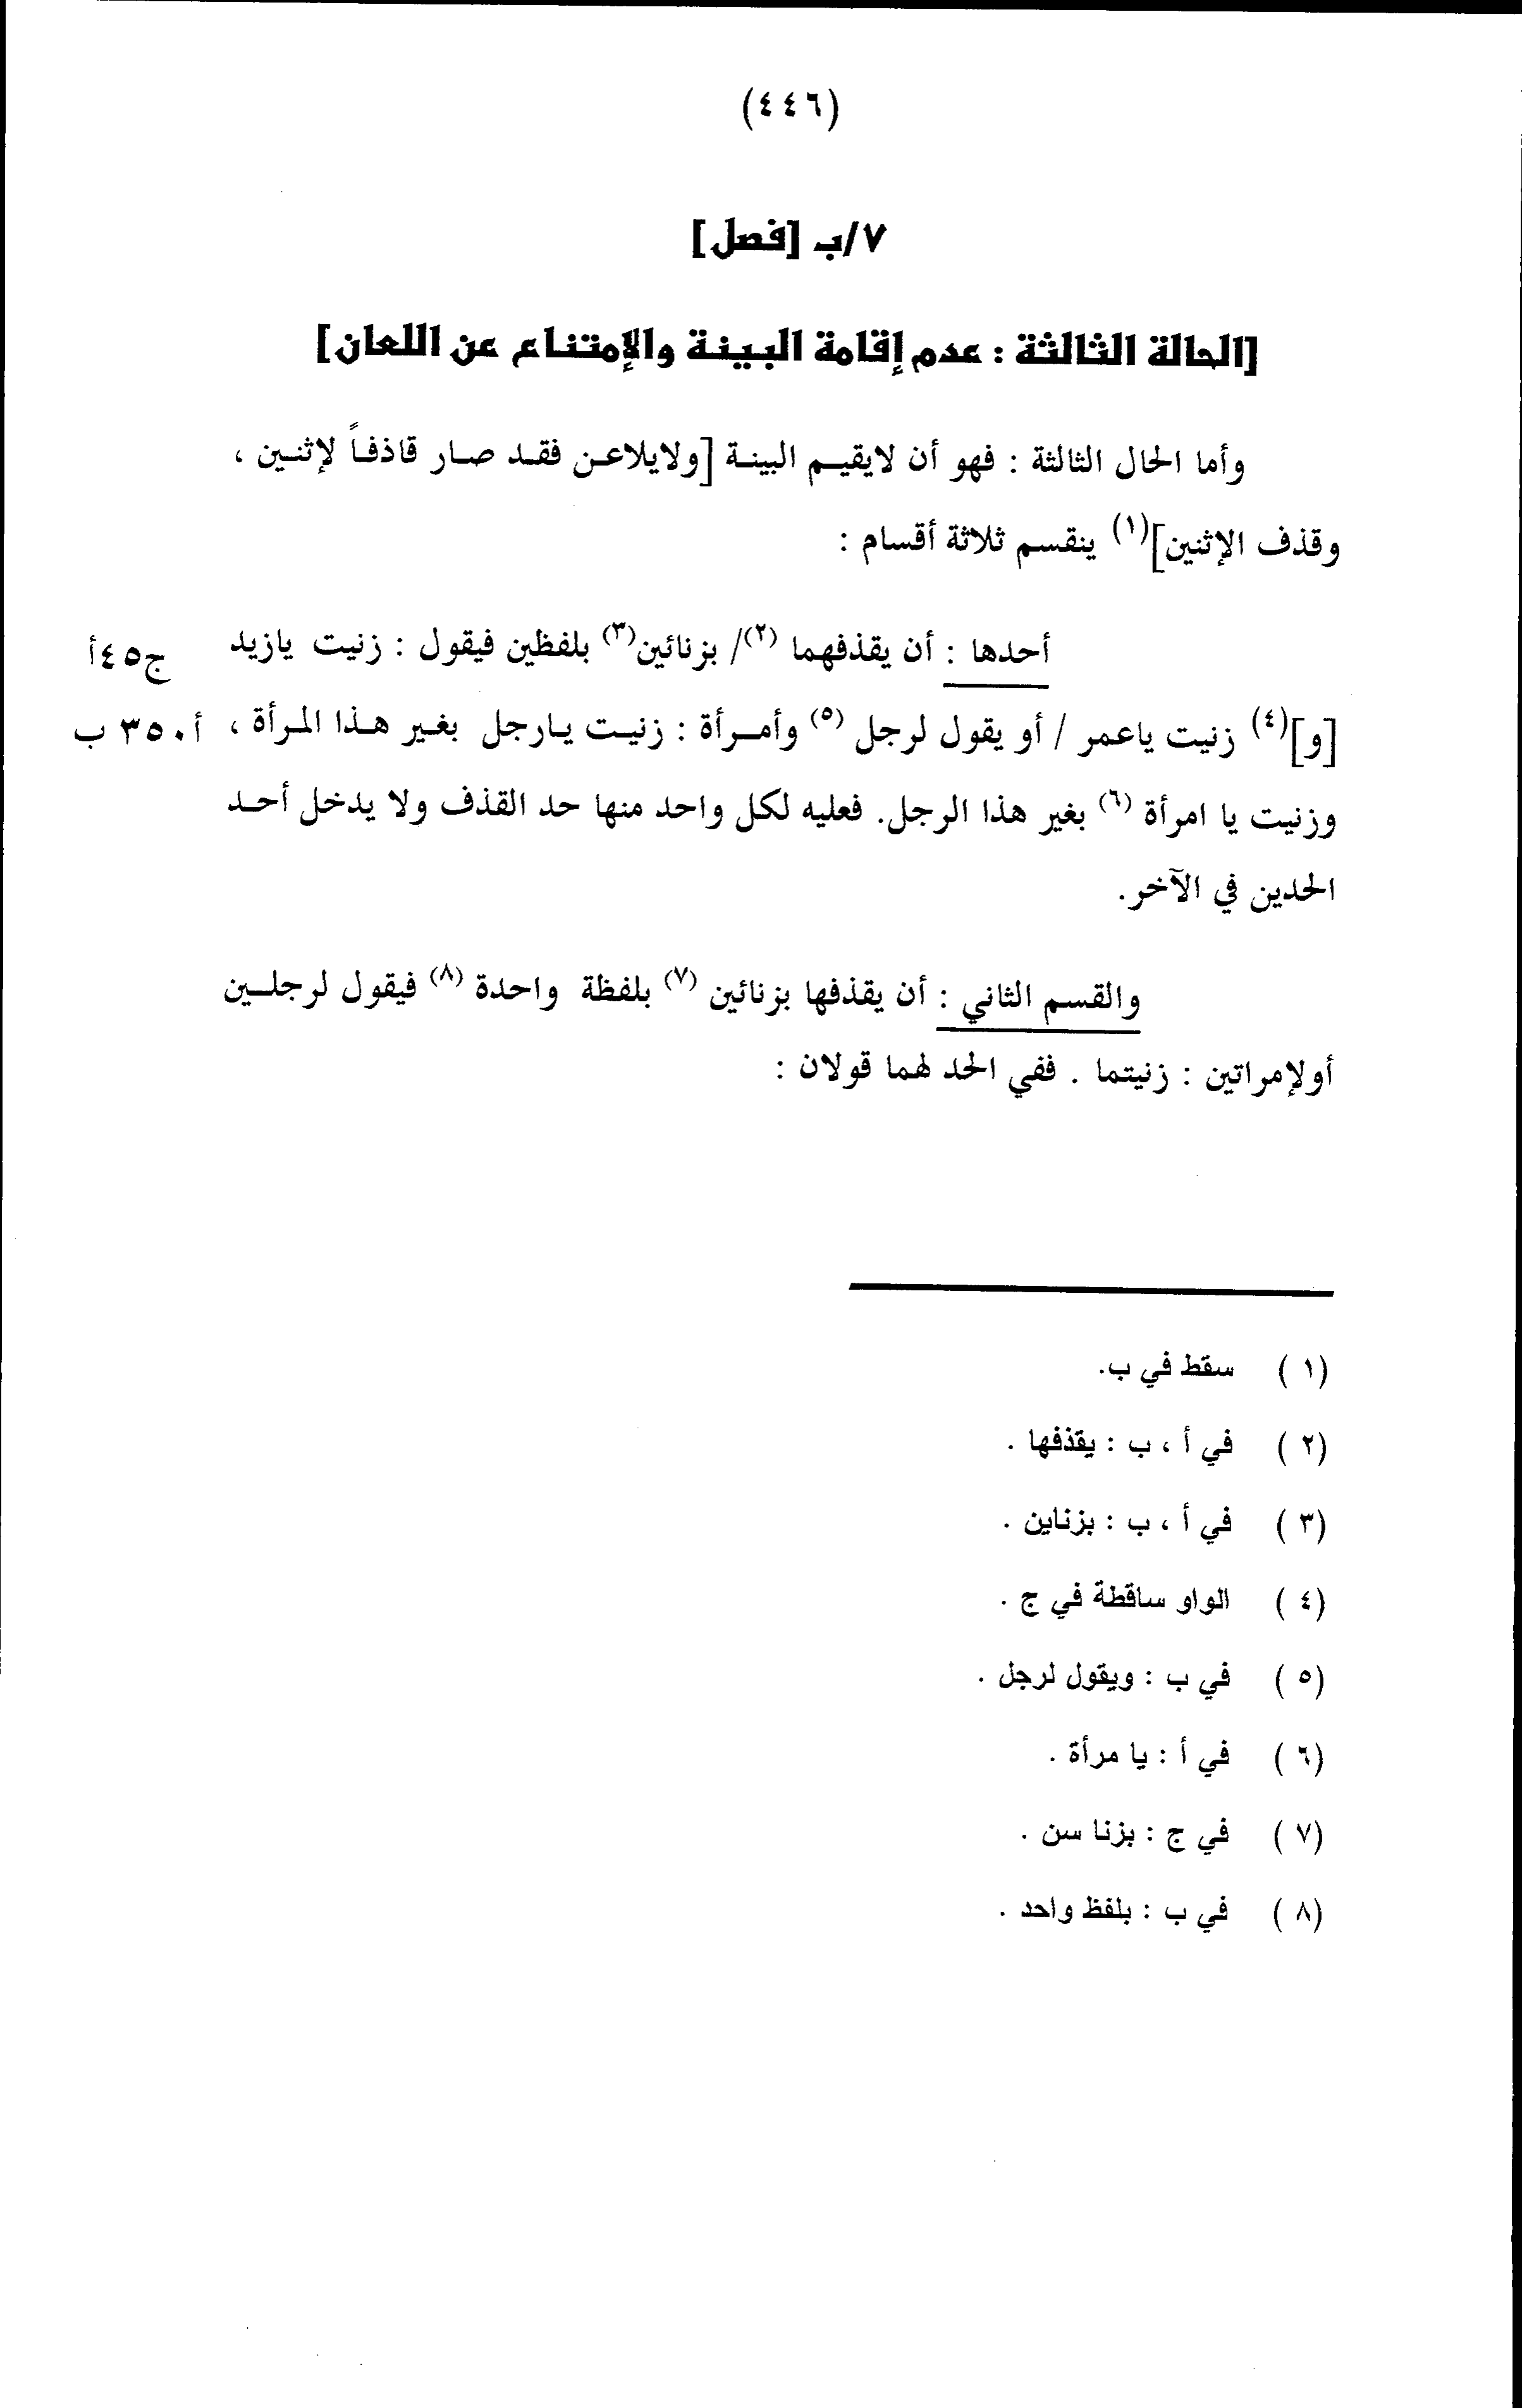 (٤٤٦)
٧/ب [فصل]
[الحالة الثالثة : عدم إقامة البينة والإمتناع عن اللعان]
وأما الحال الثالثة : فهو أن لايقيم البينة [ولايلاعن فقد صار قاذفاً لإثنين ،
وقذف الإثنين](١) ينقسم ثلاثة أقسام :
أحدها : أن يقذفهما (٢)/ بزنائين(٣) بلفظين فيقول : زنيت يازيد ج٤٥أ
[و](٤) زنيت ياعمر / أو يقول لرجل (٥) وأمرأة : زنيت يارجل بغير هذا المرأة ، أ٣٥٠ ب
وزنيت يا امرأة (٦) بغير هذا الرجل. فعليه لكل واحد منها حد القذف ولا يدخل أحد
الحدين في الآخر.
والقسم الثاني : أن يقذفها بزنائين (٧) بلفظة واحدة (٨) فيقول لرجلين
أولإمراتين : زنيتما . ففي الحد لهما قولان :
(١) سقط في ب.
(٢) في أ ، ب : يقذفها .
(٣) في أ ، ب : بزناين .
(٤) الواو ساقطة في ج .
(٥) في ب : ويقول لرجل .
(٦) في أ : يا مرأة .
(٧) في ج : بزنا سن .
(٨) في ب : بلفظ واحد .